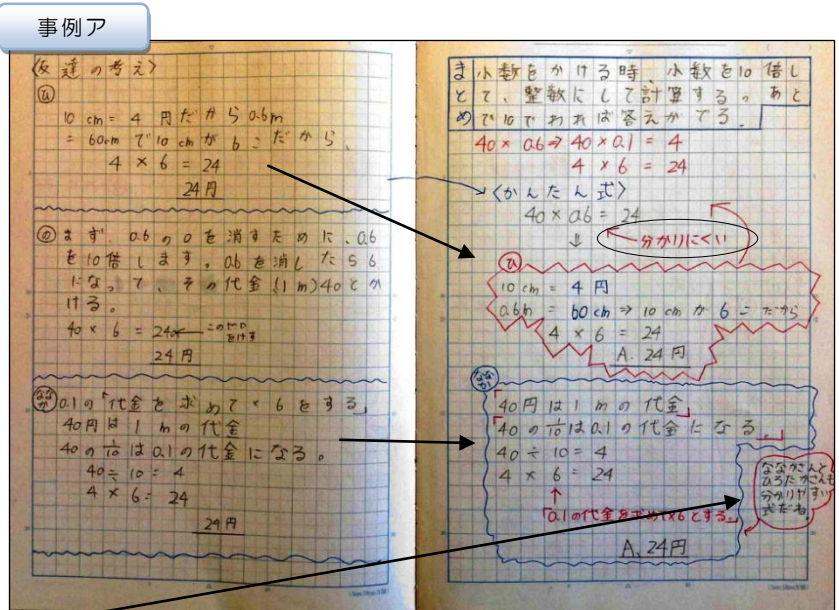 事例ア
〈友達の考え〉
ひ
10cm = 4 円だから 0.6m
= 60cm で 10cm が 6 こだから、
4 × 6 = 24
24円
の まず、0.6の0を消すために、0.6
を10倍します。0.6を消したら6
になって、その代金(1m)40とか
ける。
40 × 6 = 240
24円
ななか 0.1の「代金を求めて×6をする」
40円は1mの代金
40の1/10は0.1の代金になる。
40 ÷ 10 = 4
4 × 6 = 24
24円
まとめ
小数をかける時、小数を10倍し
て、整数にして計算する。あと
で10でわれば答えがでる。
40 × 0.6 ⇒ 40 × 0.1 = 4
4 × 6 = 24
〈かんたん式〉
40 × 0.6 = 24
⇓ ← 分かりにくい
ひ
10cm = 4 円
0.6m = 60cm ⇒ 10cm が 6 こだから
4 × 6 = 24
A. 24円
ななか
「40円は1mの代金」
「40の1/10は0.1の代金になる。」
40 ÷ 10 = 4
4 × 6 = 24
↑
「0.1の代金を求めて×6とする」
A、24円
ななかさんと
ひろたかさんも
分かりやすい
式だね。